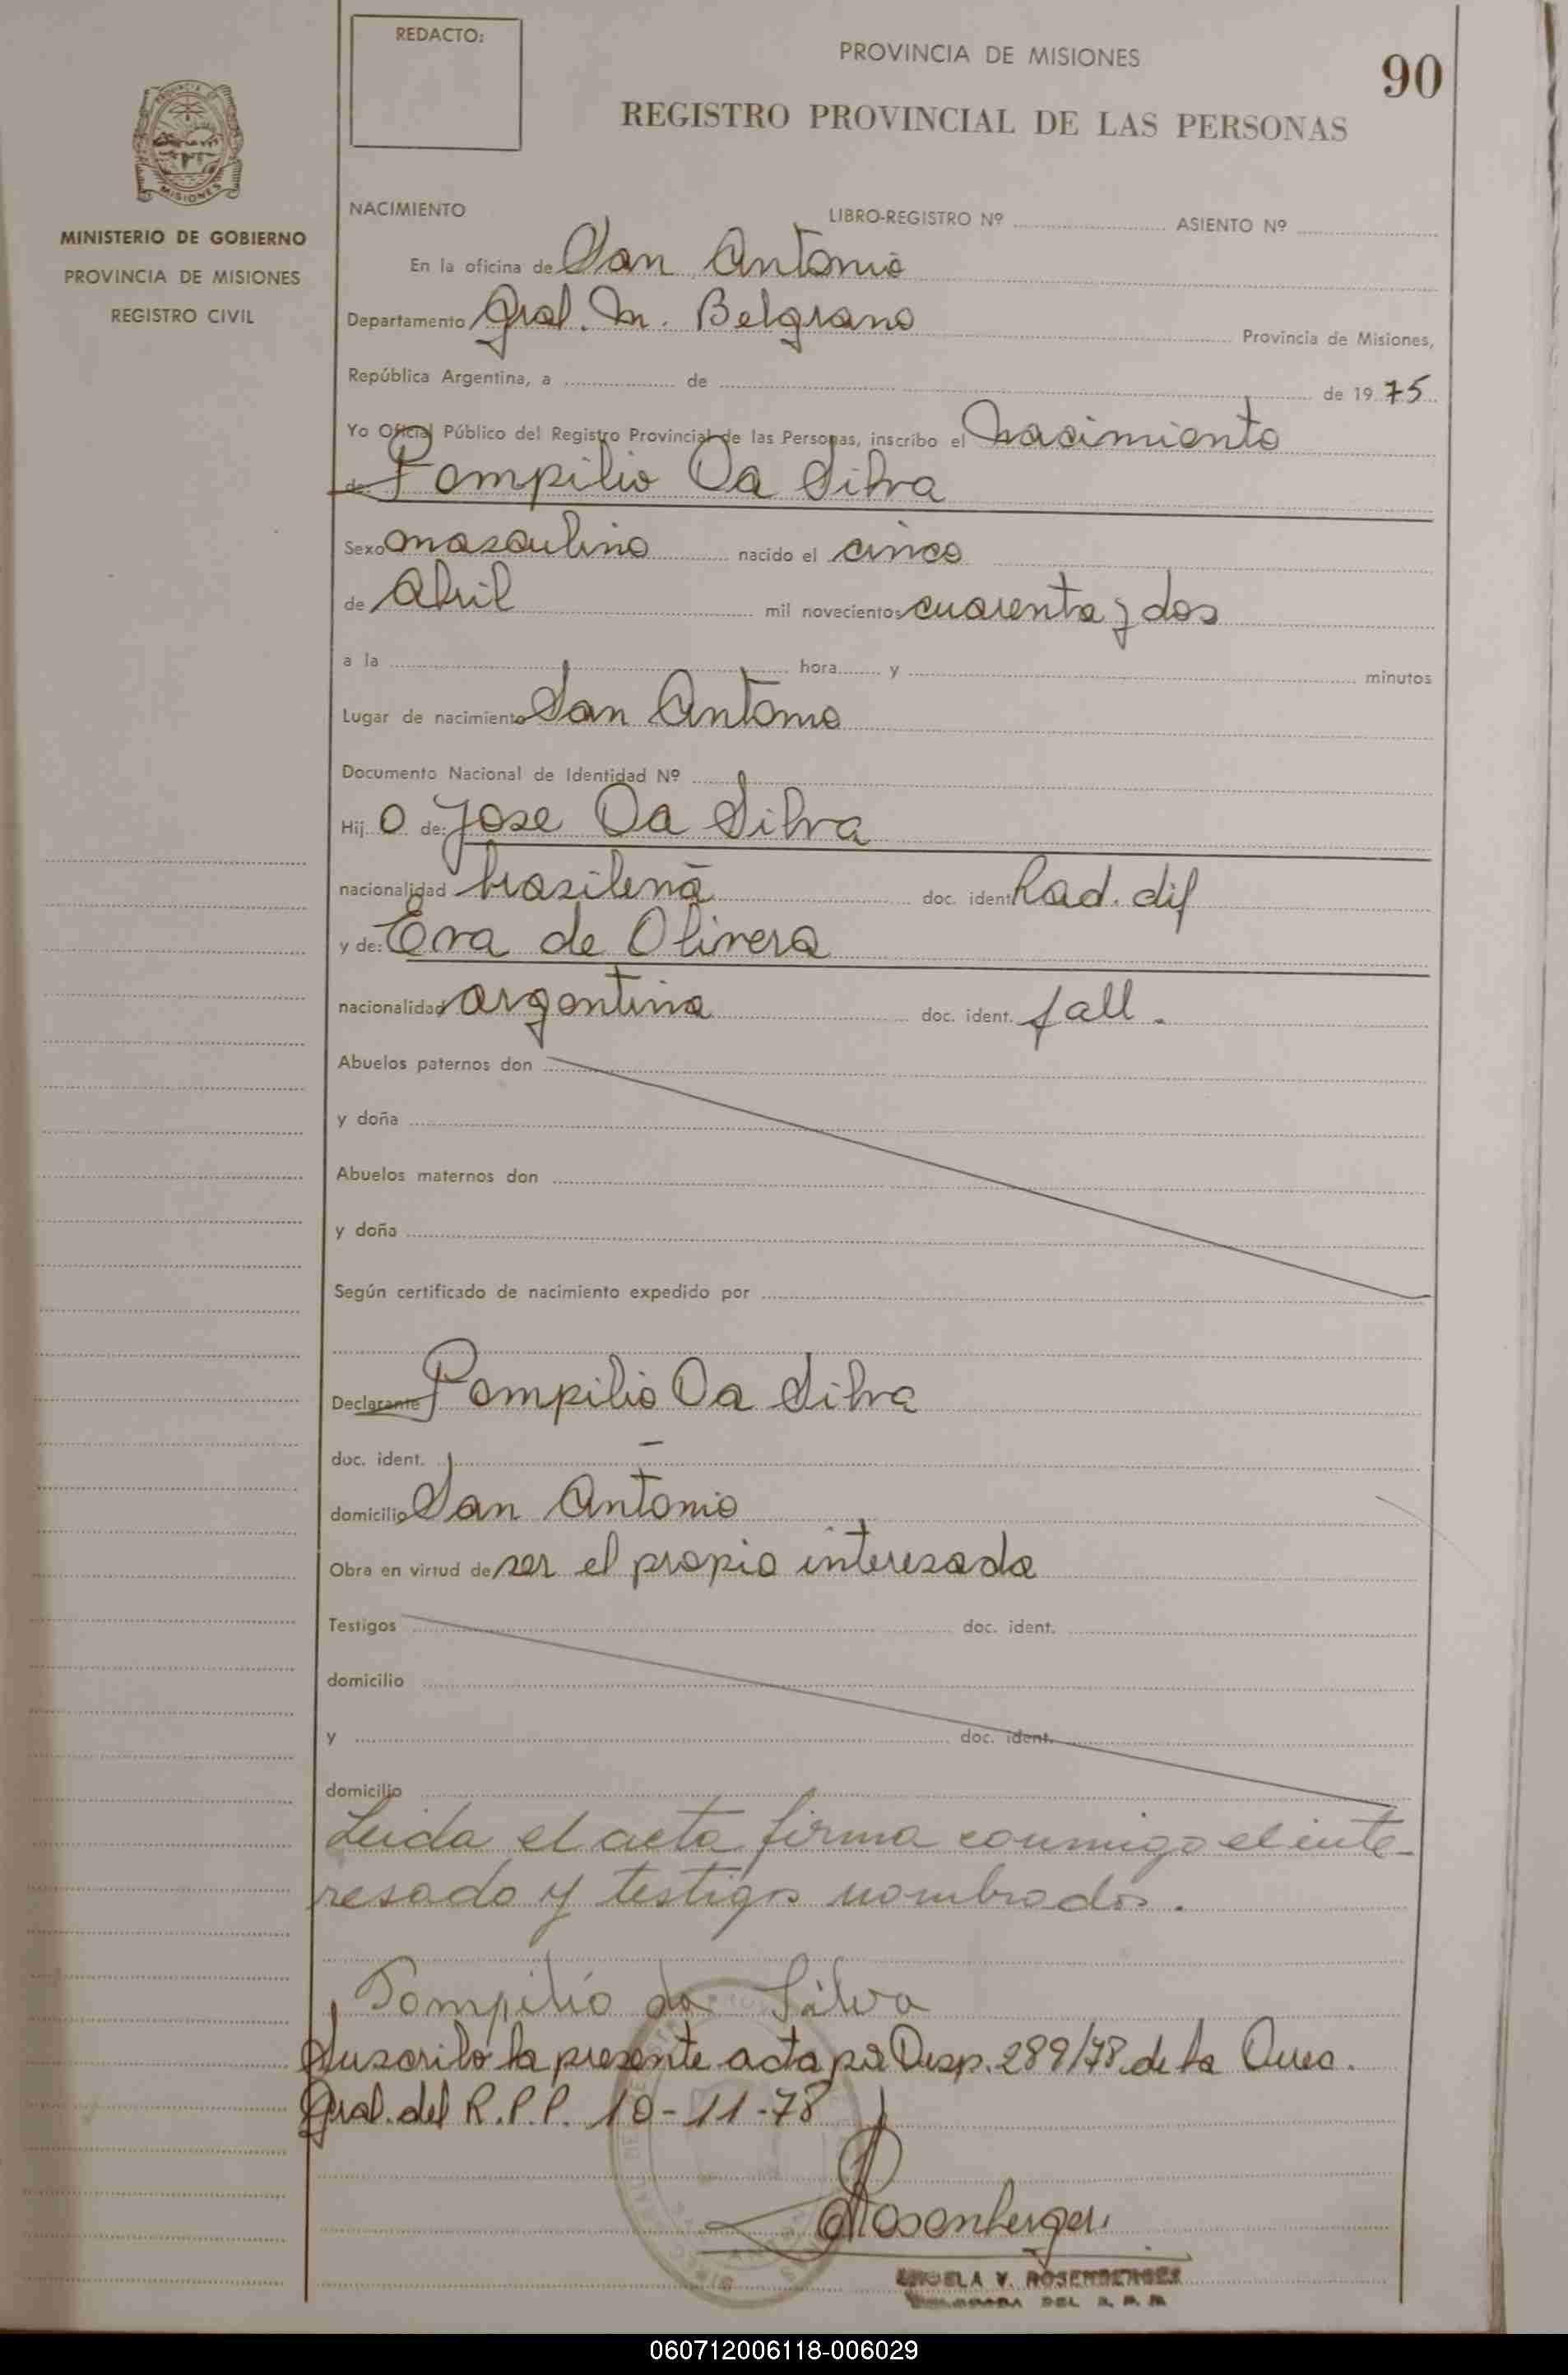 REDACTO:
PROVINCIA DE MISIONES
90
REGISTRO PROVINCIAL DE LAS PERSONAS
MISIONES
MINISTERIO DE GOBIERNO
PROVINCIA DE MISIONES
REGISTRO CIVIL
NACIMIENTO LIBRO-REGISTRO Nº ASIENTO Nº
En la oficina de San Antonio
Departamento Gral. M. Belgrano Provincia de Misiones,
República Argentina, a de de 1975
Yo Oficial Público del Registro Provincial de las Personas, inscribo el Nacimiento
de Pompilio Da Silva
Sexo masculino nacido el cinco
de Abril mil novecientos cuarenta y dos
a la hora y minutos
Lugar de nacimiento San Antonio
Documento Nacional de Identidad Nº
Hijo de: Jose Da Silva
nacionalidad brasileña doc. ident Rad. dif
y de: Eva de Olivera
nacionalidad argentina doc. ident. fall.
Abuelos paternos don
y doña
Abuelos maternos don
y doña
Según certificado de nacimiento expedido por
Declarante Pompilio Da Silva
doc. ident. —
domicilio San Antonio
Obra en virtud de ser el propio interesado
Testigos doc. ident.
domicilio
y doc. ident.
domicilio
Leida el acta firma conmigo el inte-
resado y testigos nombrados.
Pompilio da Silva
Suscribo la presente acta por Disp. 289/78 de la Direc.
Gral. del R.P.P. 10-11-78
Rosenberger
V. ROSENBERGER
DEL R. P. P.
060712006118-006029